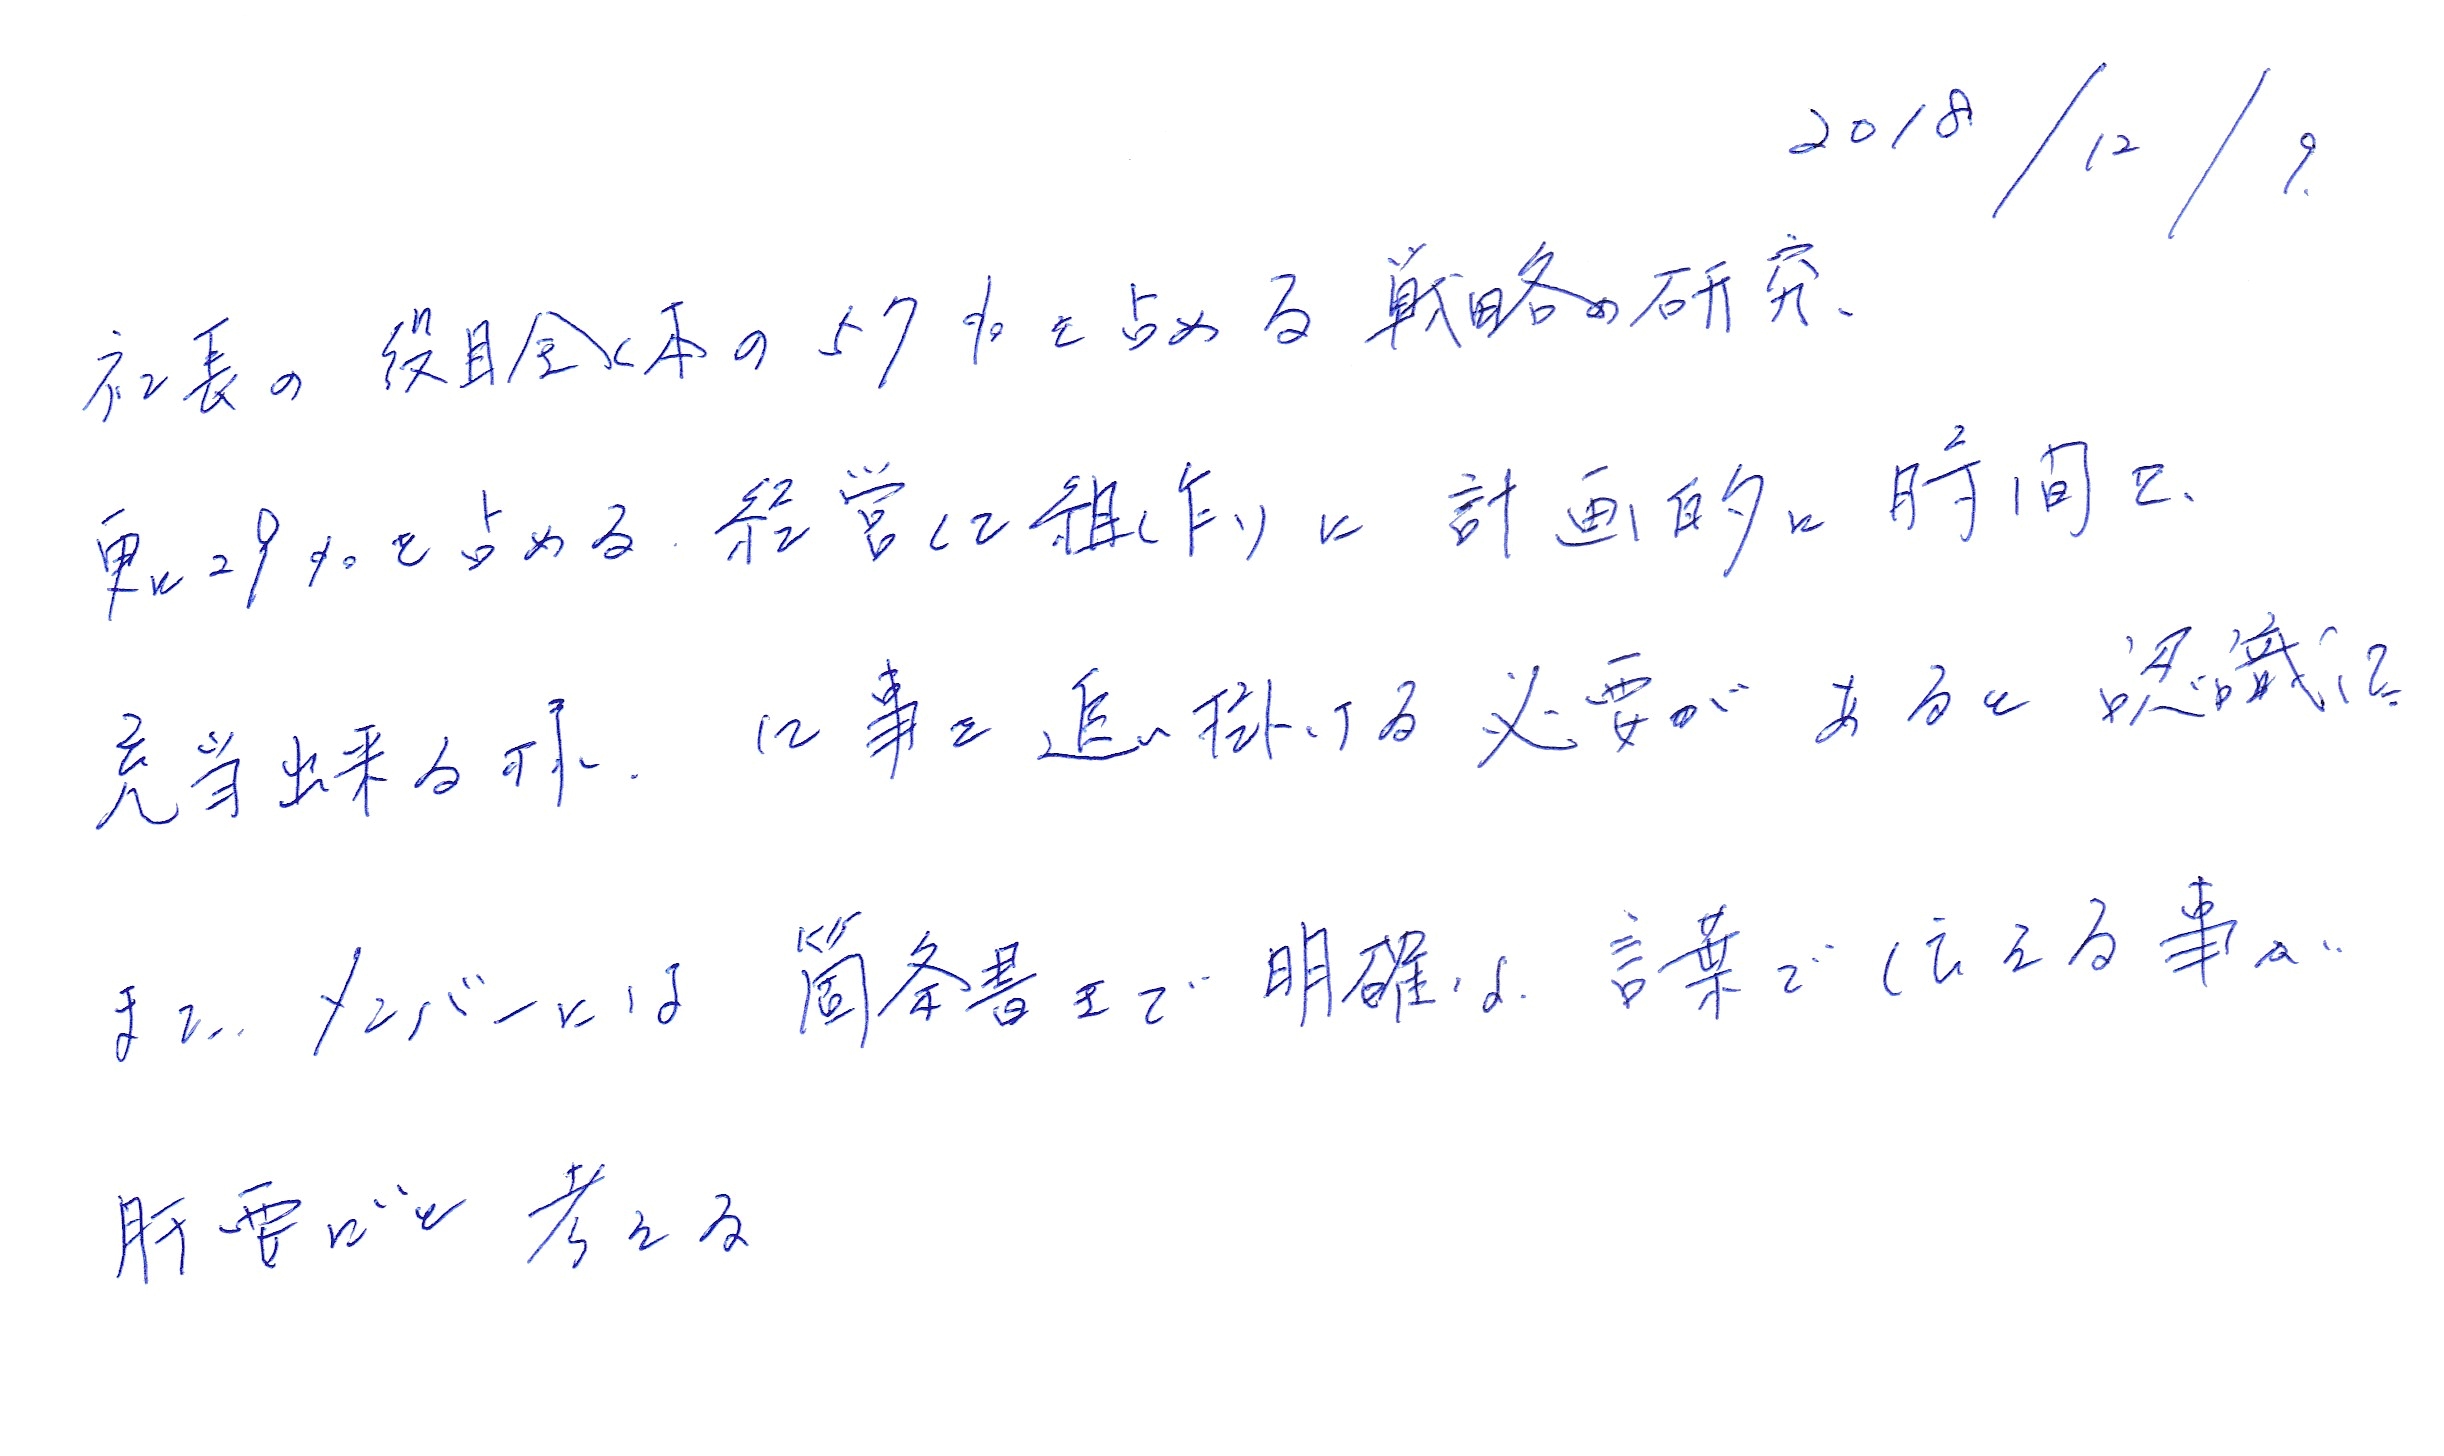 2018/12/9.
社長の役目全体の57%を占める戦略の研究、
更に29%を占める.経営仕組作りに計画的に時間を、
充当出来る様.仕事を追い掛ける必要があると認識した
また.メンバーには箇条書まで明確な.言葉で伝える事が
肝要だと考える